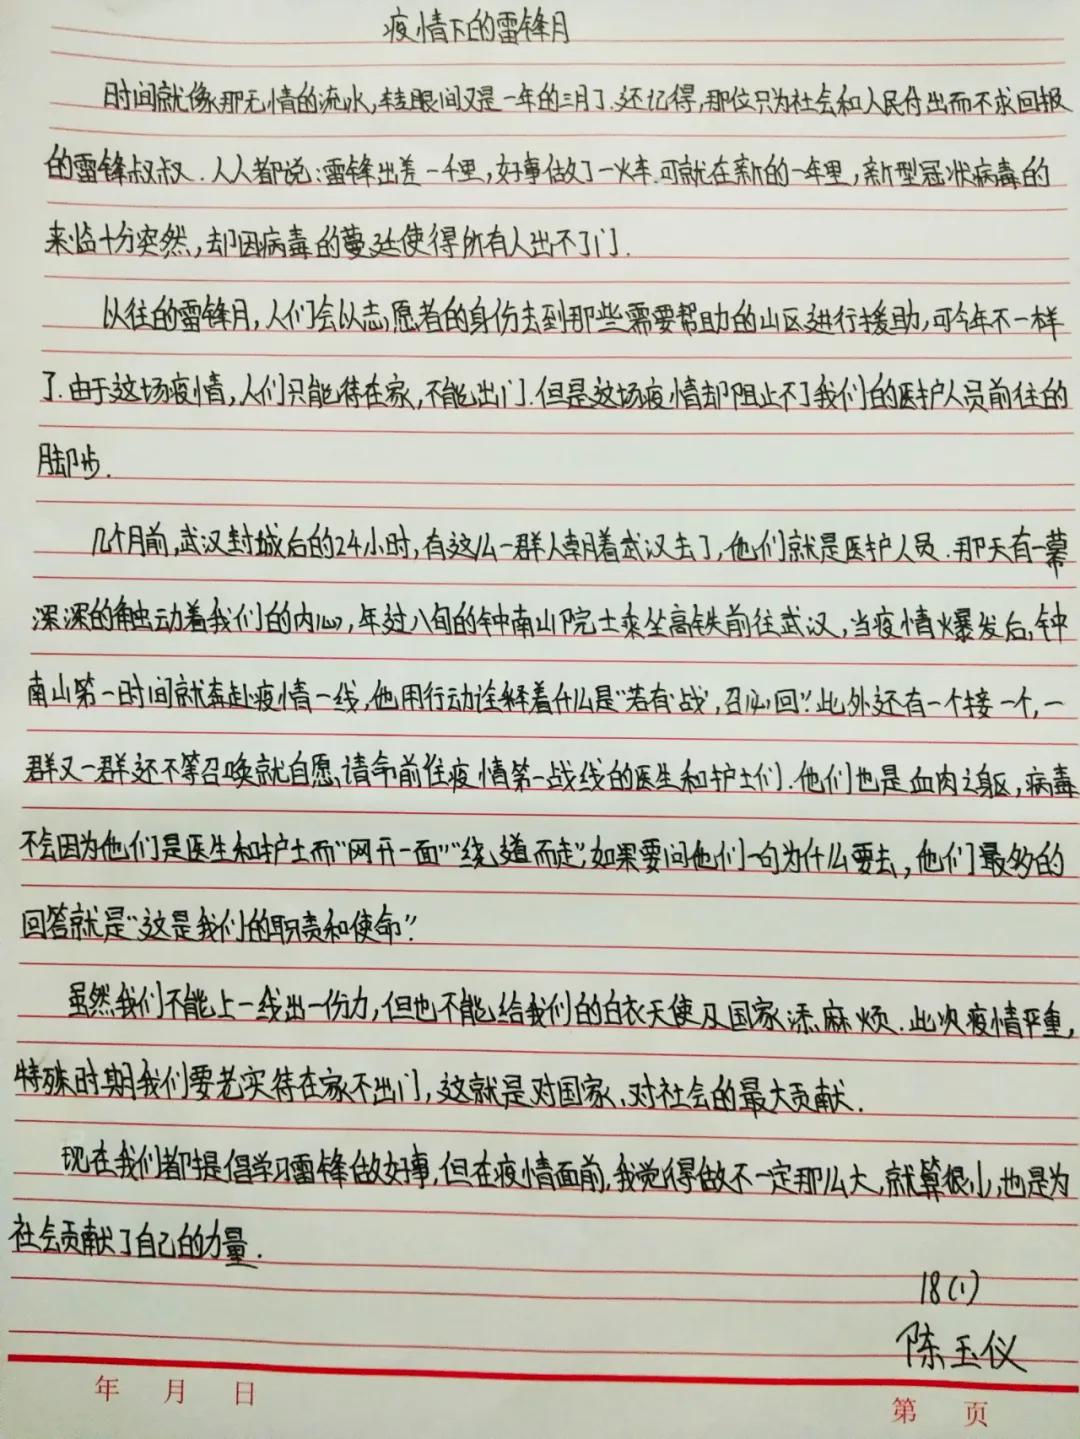 疫情下的雷锋月
时间就像那无情的流水,转眼间又是一年的三月了.还记得,那位只为社会和人民付出而不求回报
的雷锋叔叔.人人都说:雷锋出差一千里,好事做了一火车.可就在新的一年里,新型冠状病毒的
来临十分突然,却因病毒的蔓延使得所有人出不了门.
以往的雷锋月,人们会以志愿者的身份去到那些需要帮助的山区进行援助,可今年不一样
了.由于这场疫情,人们只能待在家,不能出门.但是这场疫情却阻止不了我们的医护人员前往的
脚步.
几个月前,武汉封城后的24小时,有这么一群人朝着武汉去了,他们就是医护人员.那天有一幕
深深的触动着我们的内心,年过八旬的钟南山院士乘坐高铁前往武汉,当疫情爆发后,钟
南山第一时间就奔赴疫情一线,他用行动诠释着什么是“若有战,召必回”.此外还有一个接一个,一
群又一群还不等召唤就自愿请命前往疫情第一战线的医生和护士们.他们也是血肉之躯,病毒
不会因为他们是医生和护士而“网开一面”“绕道而走”,如果要问他们一句为什么要去,他们最多的
回答就是“这是我们的职责和使命”.
虽然我们不能上一线出一份力,但也不能给我们的白衣天使及国家添麻烦.此次疫情严重,
特殊时期我们要老实待在家不出门,这就是对国家、对社会的最大贡献.
现在我们都提倡学习雷锋做好事,但在疫情面前,我觉得做不一定那么大,就算很小,也是为
社会贡献了自己的力量.
18(1)
陈玉仪
年 月 日
第 页